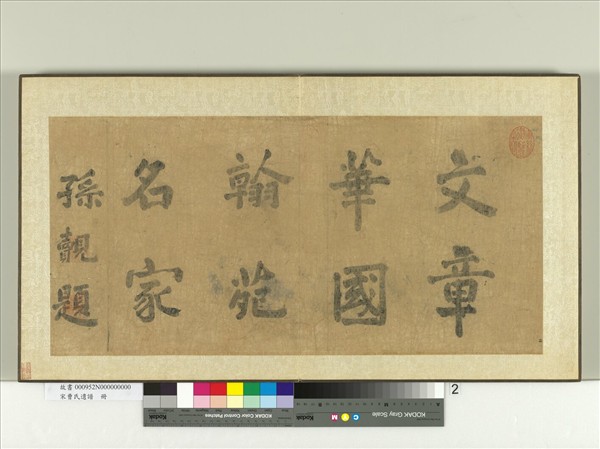 文章
華國
翰苑
名家
孫覿題
故書 000952N000000000
宋曹氏遺譜 冊
2
KODAK Color Control Patches
KODAK Gray Scale
C Y M
Kodak